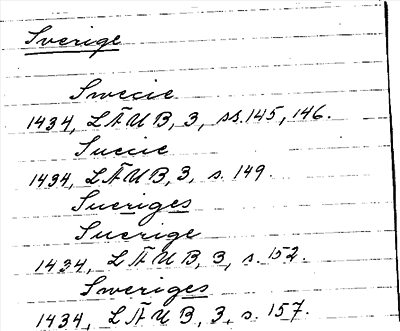 Sverige
Swecie
1434, LÄUB, 3, ss. 145, 146.
Suecie
1434, LÄUB, 3, s. 149.
Sueriges
Suerige
1434, LÄUB, 3, s. 152.
Sweriges
1434, LÄUB, 3, s. 157.